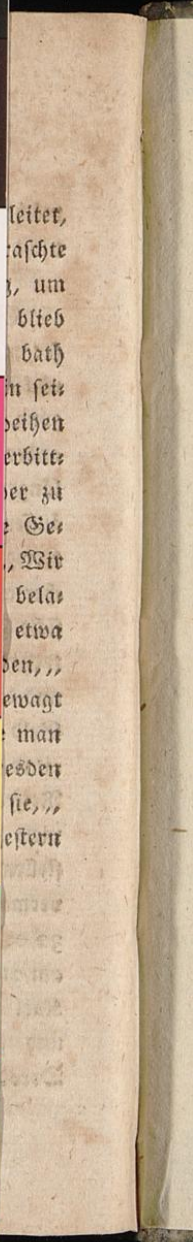 leitet,
raschte
g, um
blieb
bath
in sei⸗
deihen
erbitt⸗
der zu
e Ge⸗
„Wir
bela⸗
etwa
den,„
ewagt
e man
resden
sie,„
estern